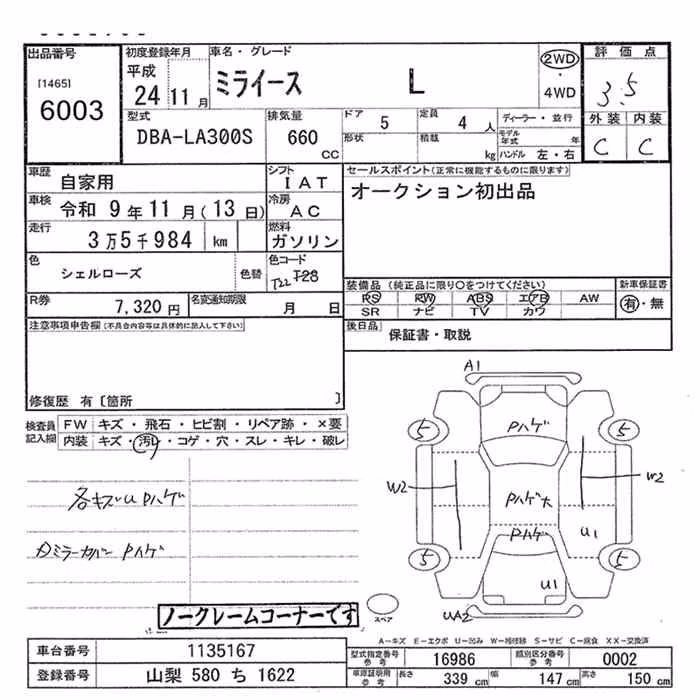 出品番号
[1465]
6003
初度登録年月
平成
24 11 月
車名・グレード
ミライース L
2WD
・
4WD
評価点
3.5
外装 内装
C C
型式
DBA-LA300S
排気量
660
CC
ドア 5
定員 4 人
ディーラー・並行
形状
積載 kg
モデル年式 年
ハンドル 左・右
車歴
自家用
シフト
IAT
セールスポイント(正常に機能するものに限ります)
オークション初出品
車検
令和 9年 11月(13日)
冷房
AC
走行
3万5千984 km
燃料
ガソリン
色
シェルローズ
色替
色コード
T22 T28
装備品(純正品に限り○をつけてください)
PS PW ABS エアB AW
SR ナビ TV カワ
新車保証書
有・無
R券
7,320円
名変通知期限
月 日
後日品
保証書・取説
注意事項申告欄(不具合内容等は具体的に記入して下さい)
修復歴 有〔箇所 〕
検査員
記入欄
FW キズ・飛石・ヒビ割・リペア跡・×要
内装 キズ・汚レ・コゲ・穴・スレ・キレ・破レ
各キズU Pハゲ
ミラーカバー Pハゲ
A1
Pハゲ
5 5
W2
Pハゲ大
W2
Pハゲ
U1
5 5
U1
UA2
スペア
ノークレームコーナーです
A-キズ E-エクボ U-凹み W-補修跡 S-サビ C-腐食 XX-交換済
車台番号
1135167
登録番号
山梨 580 ち 1622
型式指定番号
参考
16986
類別区分番号
参考
0002
車庫証明用
参考
長さ 339 cm
幅 147 cm
高さ 150 cm